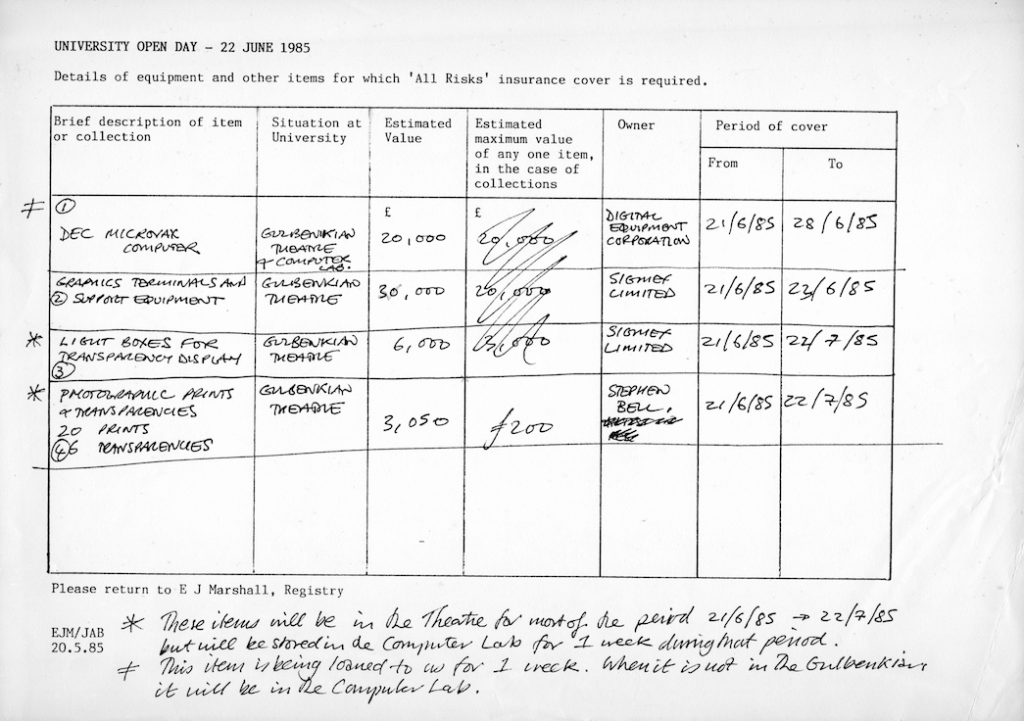 UNIVERSITY OPEN DAY - 22 JUNE 1985
Details of equipment and other items for which 'All Risks' insurance cover is required.
Brief description of item
or collection
Situation at
University
Estimated
Value
Estimated
maximum value
of any one item,
in the case of
collections
Owner
Period of cover
From
To
≠ ①
DEC MICROVAX
COMPUTER
GULBENKIAN
THEATRE
+ COMPUTER
LAB.
£
20,000
£
20,000
DIGITAL
EQUIPMENT
CORPORATION
21/6/85
28/6/85
GRAPHICS TERMINALS AND
② SUPPORT EQUIPMENT
GULBENKIAN
THEATRE
30,000
20,000
SIGMEX
LIMITED
21/6/85
23/6/85
* LIGHT BOXES FOR
TRANSPARENCY DISPLAY
③
GULBENKIAN
THEATRE
6,000
SIGMEX
LIMITED
21/6/85
22/7/85
* PHOTOGRAPHIC PRINTS
+ TRANSPARENCIES
20 PRINTS
④ 6 TRANSPARENCIES
GULBENKIAN
THEATRE
3,050
£200
STEPHEN
BELL,
21/6/85
22/7/85
Please return to E J Marshall, Registry
EJM/JAB
20.5.85
* These items will be in the Theatre for most of the period 21/6/85 → 22/7/85
but will be stored in the Computer Lab for 1 week during that period.
≠ This item is being loaned to us for 1 week. When it is not in the Gulbenkian,
it will be in the Computer Lab.